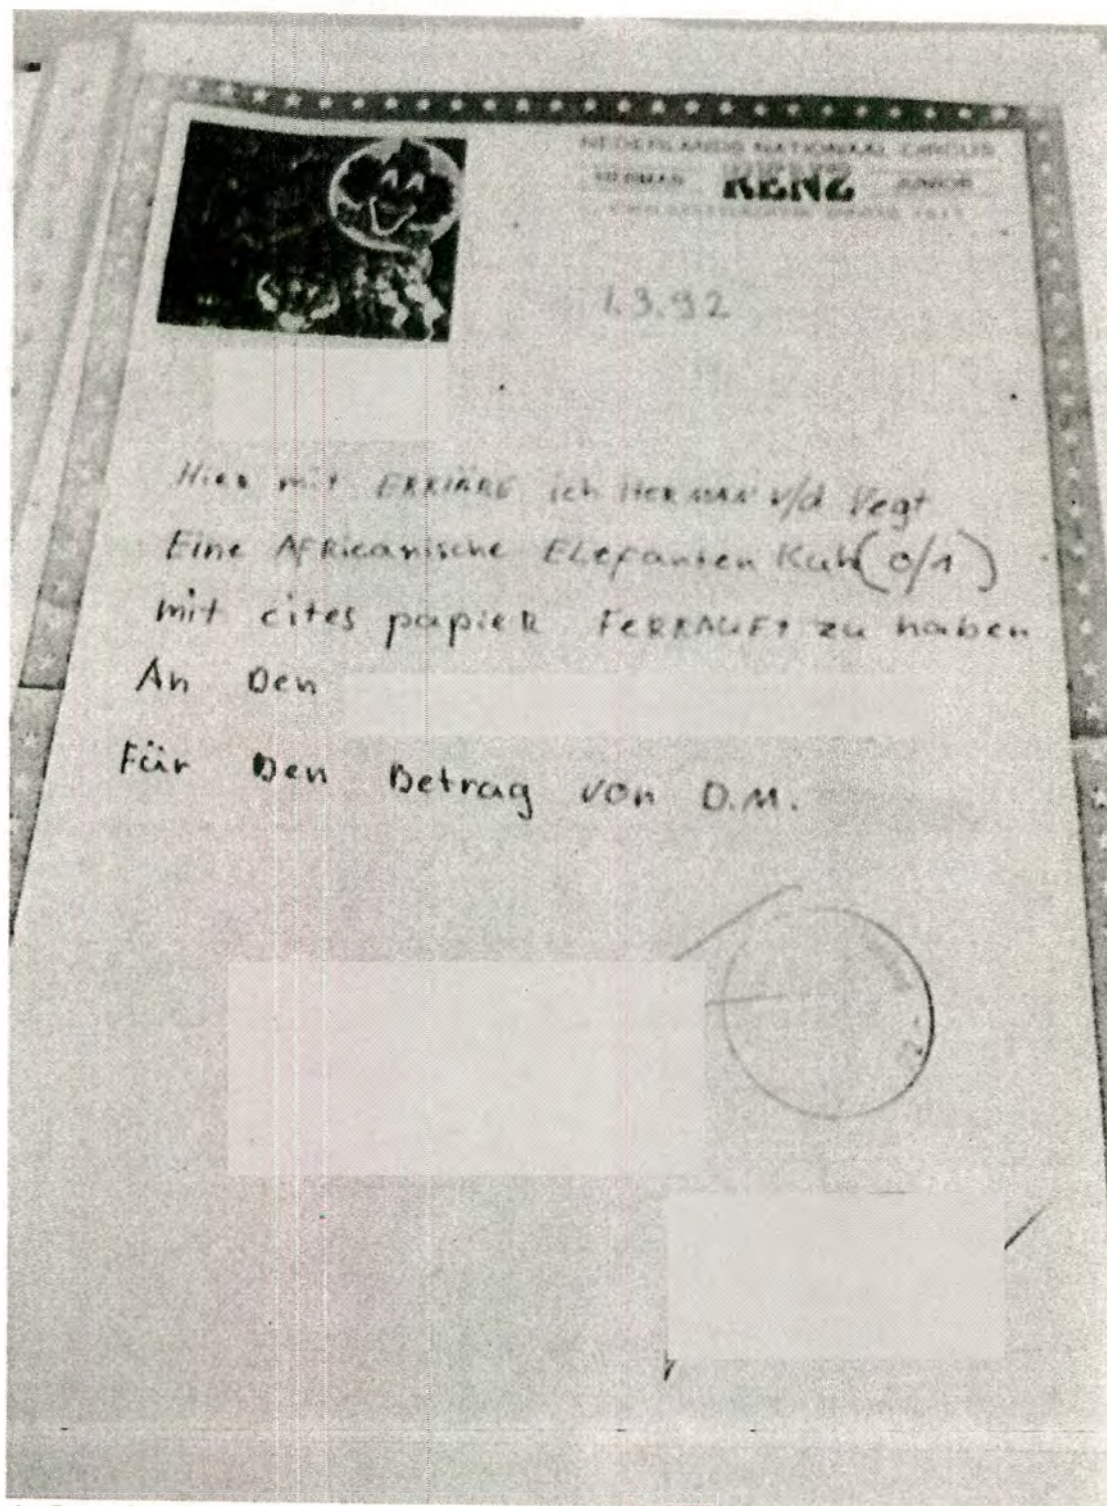 NEDERLANDS NATIONAAL CIRCUS
HERMAN RENZ JUNIOR
1.3.92
Hier mit ERKIÄRE ich HERMAN v/d Vegt
Eine AFRicanische ELefanten Kuh (0/1)
mit cites papieR FERKAUFT zu haben
An Den
Für Den Betrag von D.M.